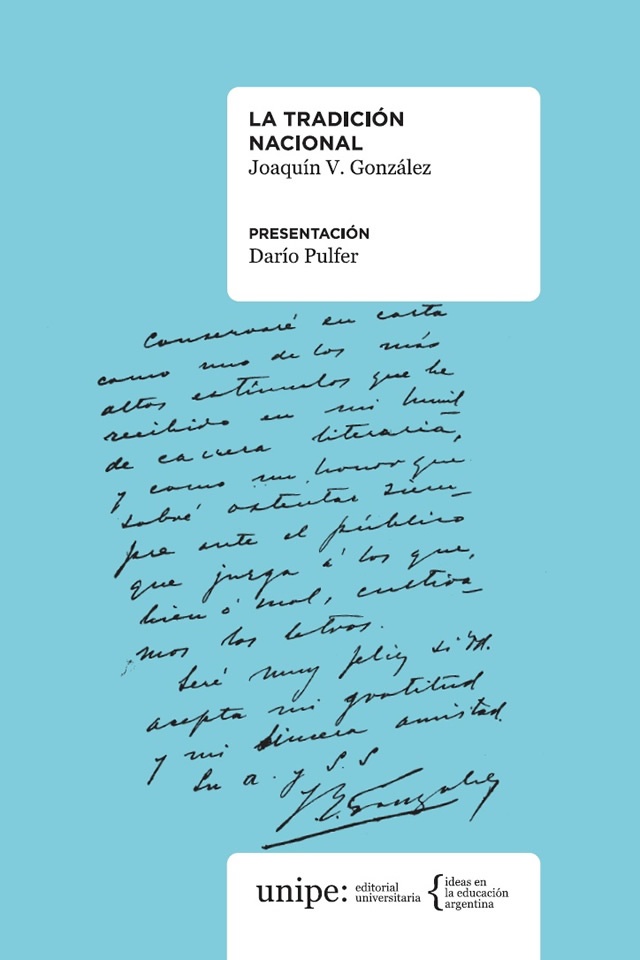 LA TRADICIÓN
NACIONAL
Joaquín V. González
PRESENTACIÓN
Darío Pulfer
Conservaré su carta
como uno de los más
altos estímulos que he
recibido en mi humil
de carrera literaria,
y como un honor que
sabré ostentar siem–
pre ante el público
que juzga á los que,
bien ó mal, cultiva–
mos las letras.
Seré muy feliz si Vd.
acepta mi gratitud
y mi sincera amistad.
Su a. y S. S
J. V. Gonzalez
unipe: editorial universitaria { ideas en la educación argentina